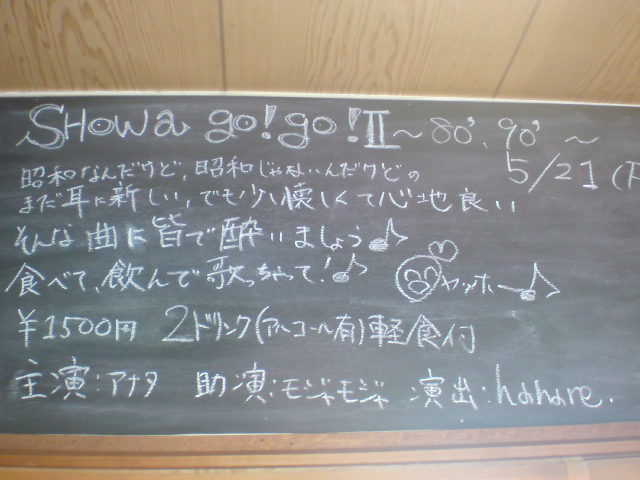 SHOWa go!go!Ⅱ～80'、90'～
5/21(F
昭和なんだけど、昭和じゃないんだけどの
まだ耳に新しい、でも少し懐しくて心地良い
そんな曲に皆で酔いましょう♪
食べて、飲んで歌っちゃって!♪ ヤッホー♪
¥1500円 2ドリンク(アルコール有)軽食付
主演:アナタ 助演:モジャモジャ 演出:hahare.